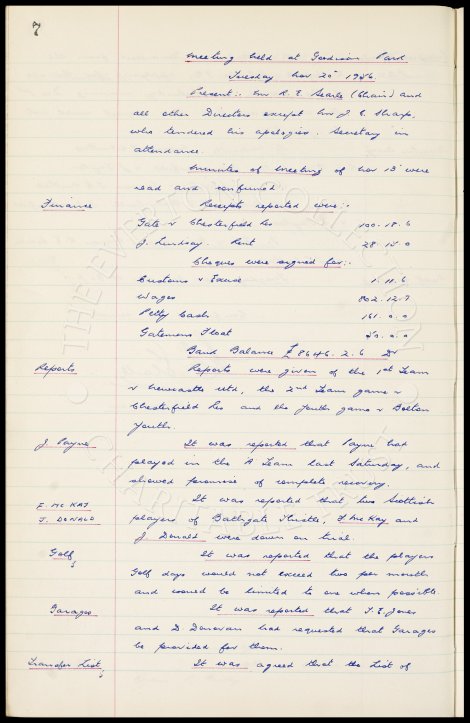 7
Meeting held at Goodison Park
Tuesday Nov 20th 1956
Present:- Mr R. E. Searle (Chair) and
all other Directors except Mr J. C. Sharp,
who tendered his apologies. Secretary in
attendance.
Minutes of Meeting of Nov 13th were
read and confirmed.
Finance Receipts reported were:-
Gate v Chesterfield Res 100.18.6
J. Lindsay. Rent
Cheques were signed for:-
Customs & Excise 1.11.6
Wages 802.12.7
Petty Cash 161.0.0
Gatemens Float
Bank Balance £8646.2.6 Dr
Reports Reports were given of the 1st Team
v Newcastle Utd, the 2nd Team game v
Chesterfield Res and the Youth game v Bolton
Youth.
J. Payne It was reported that Payne had
played in the 'A' Team last Saturday, and
showed promise of complete recovery.
F. McKAY It was reported that two Scottish
J. DONALD players of Bathgate Thistle, F McKay and
J Donald were down on trial.
Golf It was reported that the players
Golf days would not exceed two per month
and would be limited to one when possible
Garages It was reported that T. E. Jones
and D Donovan had requested that Garages
be provided for them.
Transfer List It was agreed that the List of
THE EVERTON COLLECTION
CHARITABLE